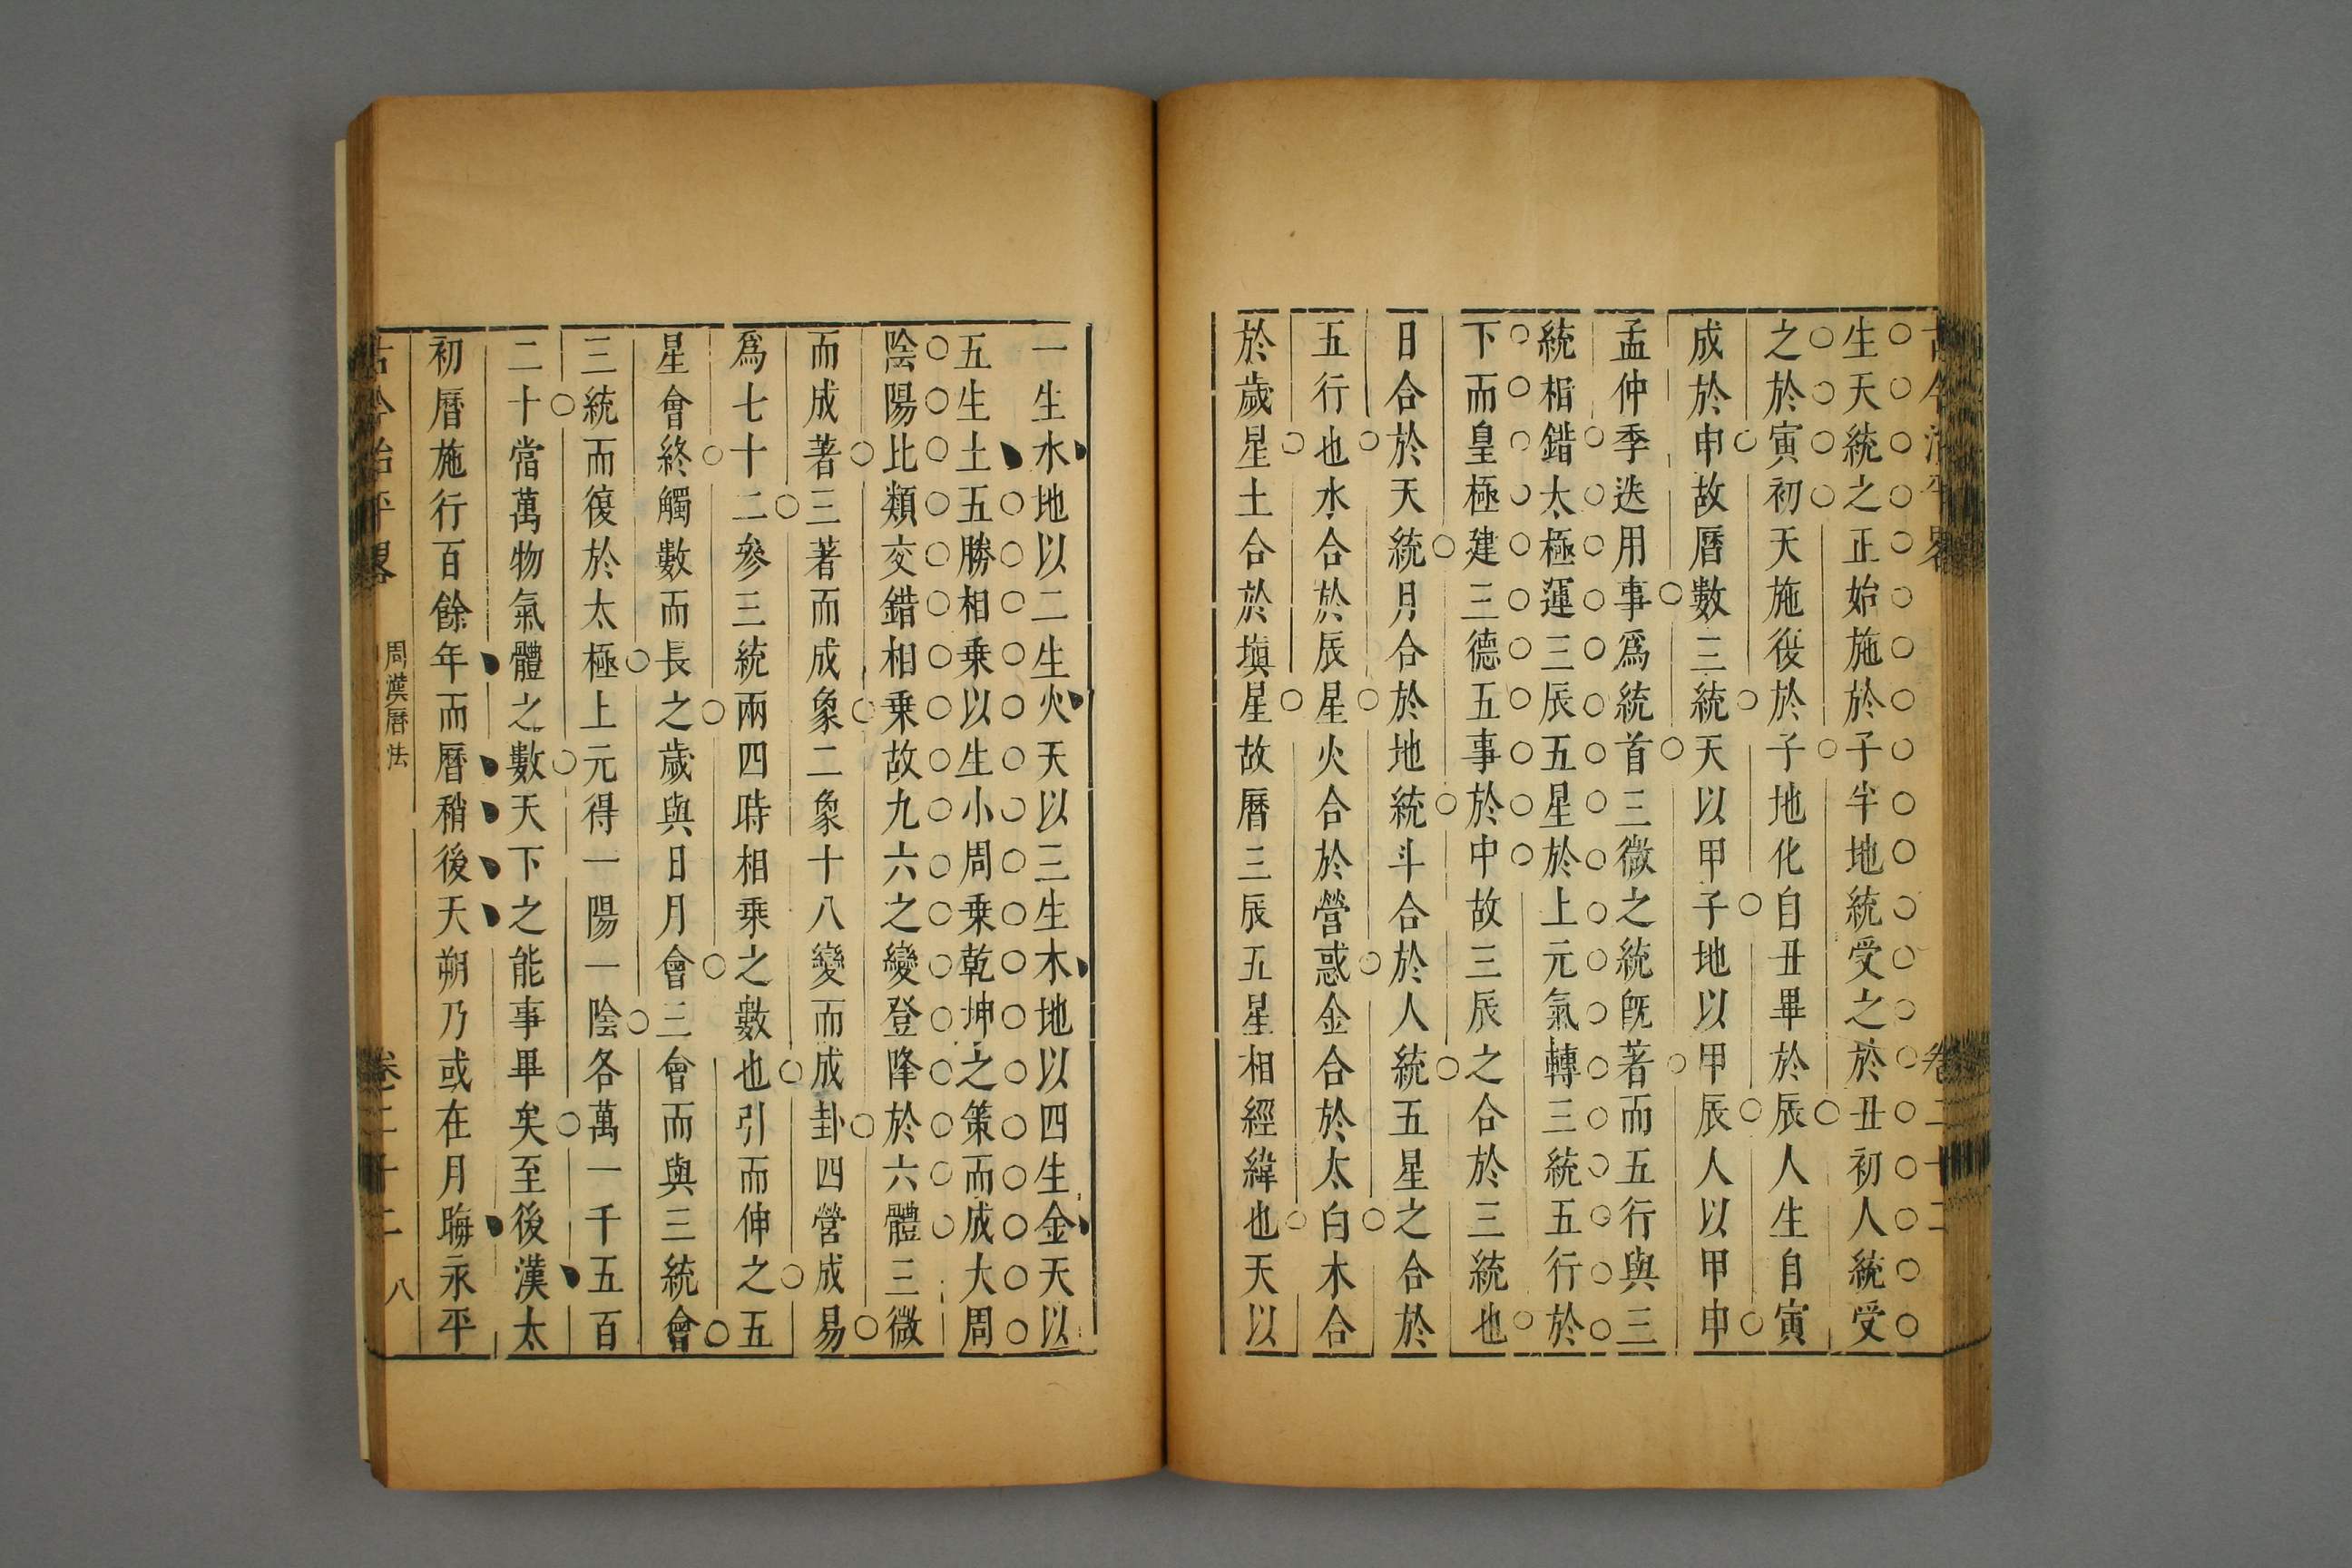 古今治平畧 卷二十二
生天統之正始施於子半地統受之於丑初人統受
之於寅初天施復於子地化自丑畢於辰人生自寅
成於申故曆數三統天以甲子地以甲辰人以甲申
孟仲季迭用事爲統首三微之統旣著而五行與三
統相錯太極運三辰五星於上元氣轉三統五行於
下而皇極建三德五事於中故三辰之合於三統也
日合於天統月合於地統斗合於人統五星之合於
五行也水合於辰星火合於營惑金合於太白木合
於歲星土合於塡星故曆三辰五星相經緯也天以
一生水地以二生火天以三生木地以四生金天以
五生土五勝相乗以生小周乗乾坤之策而成大周
陰陽比類交錯相乗故九六之變登降於六體三微
而成著三著而成象二象十八變而成卦四營成易
爲七十二參三統兩四時相乘之數也引而伸之五
星會終觸數而長之歲與日月會三會而與三統會
三統而復於太極上元得一陽一陰各萬一千五百
二十當萬物氣體之數天下之能事畢矣至後漢太
初曆施行百餘年而曆稍後天朔乃或在月晦永平
古今治平畧 周漢曆法 卷二十二 八